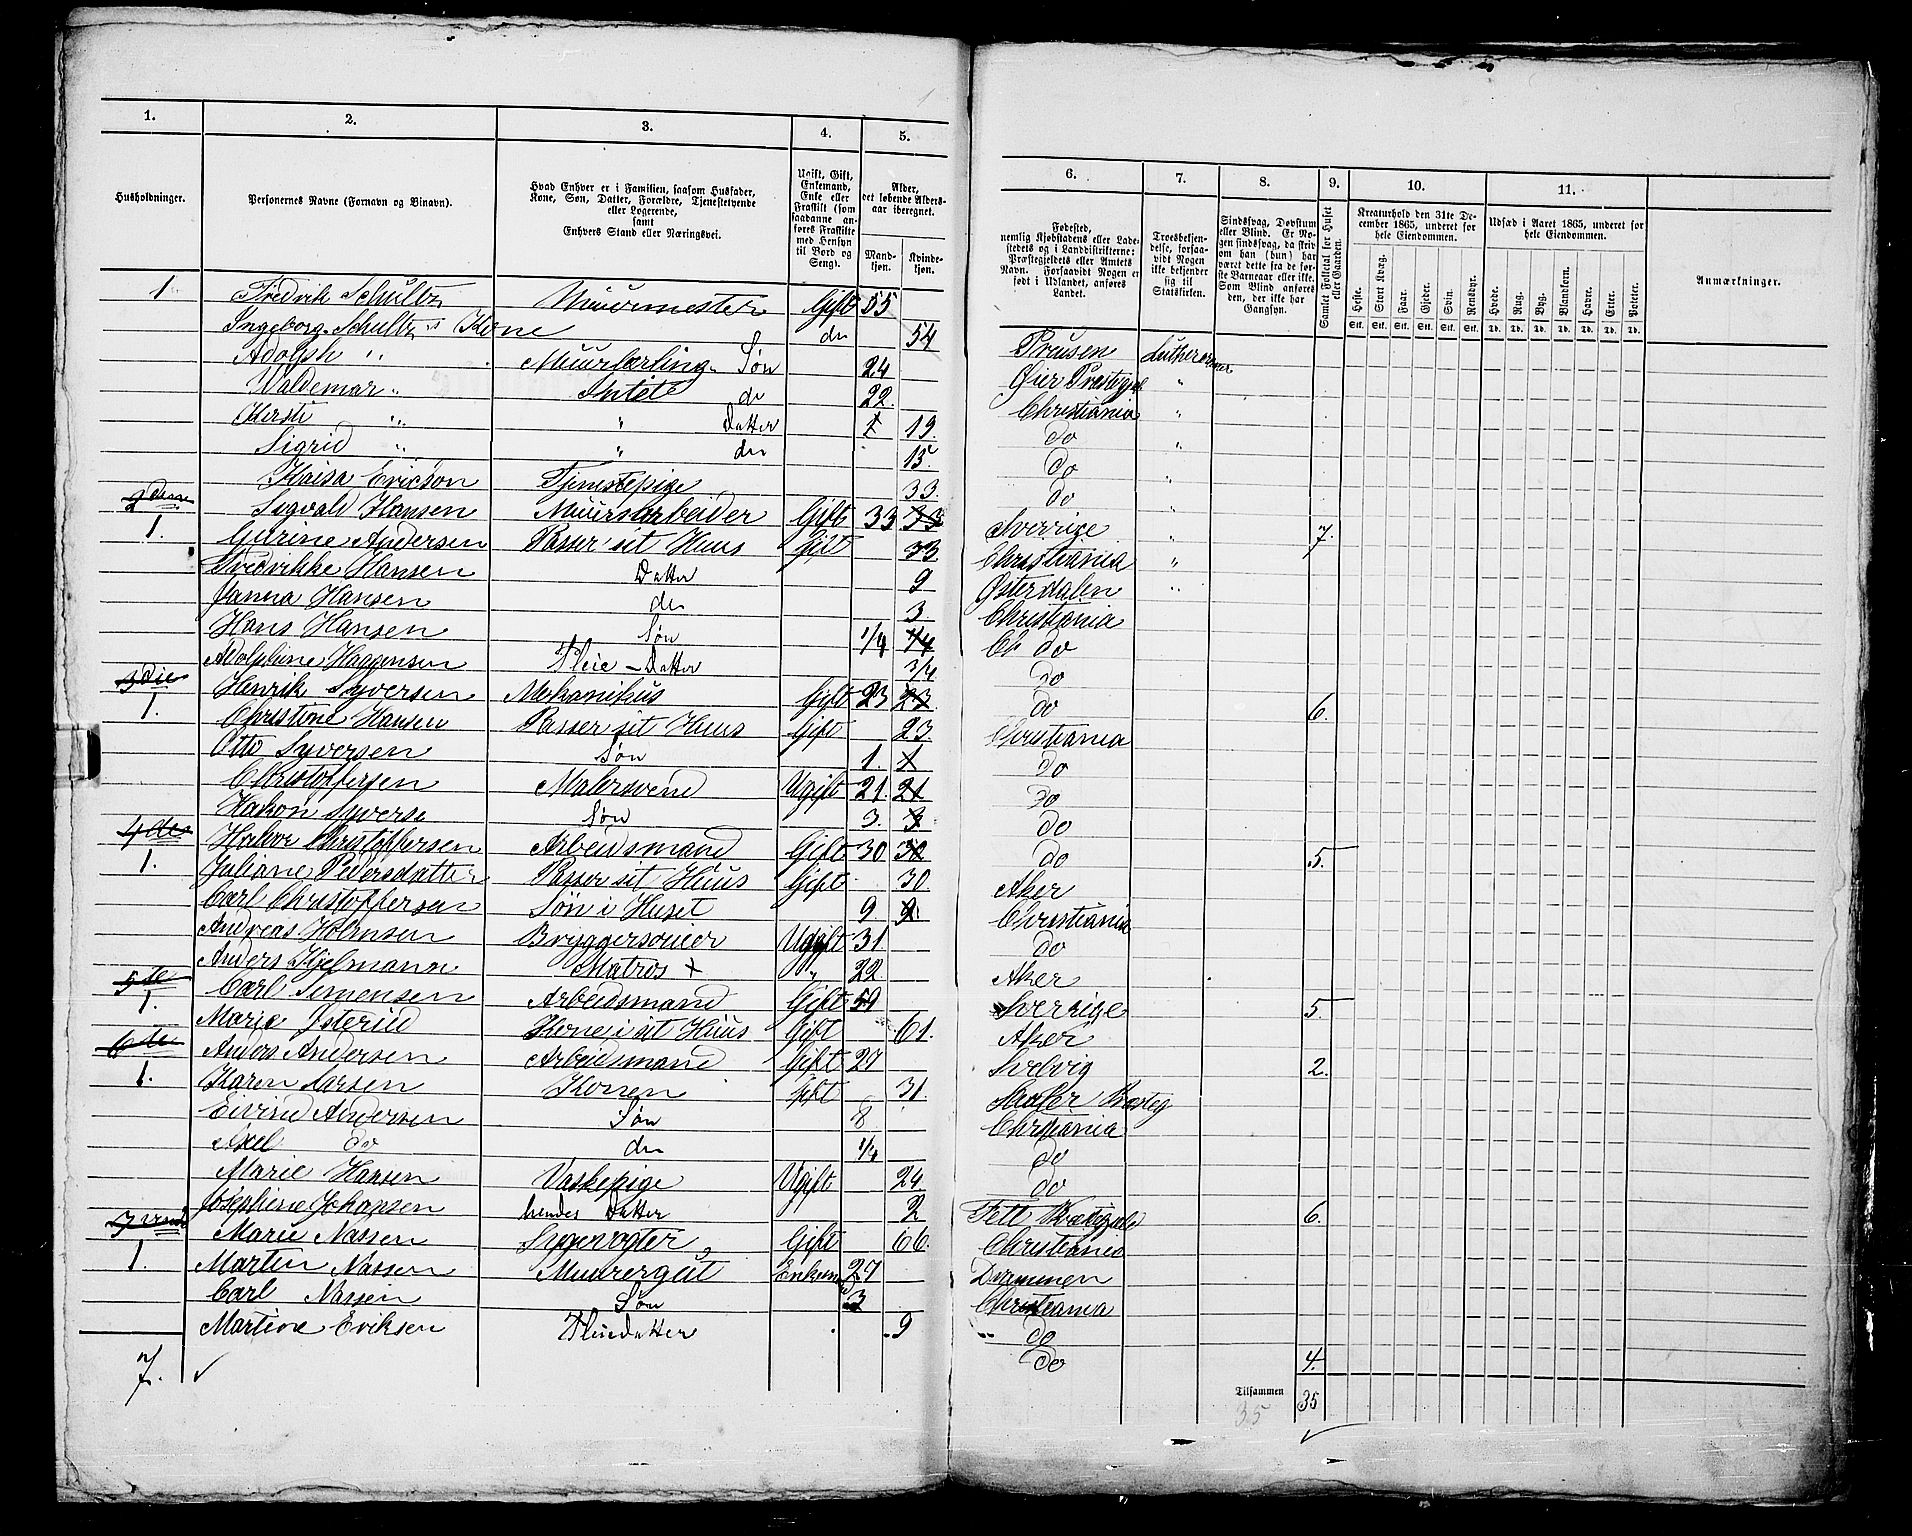 1. 2. 3. 4. 5.
Husholdninger.
Personernes Navne (Fornavn og Binavn).
Hvad Enhver er i Familien, saasom Husfader, Kone, Søn, Datter, Forældre, Tjenestetyende eller Logerende, samt Enhvers Stand eller Næringsvei.
Ugift, Gift, Enkemand, Enke eller Fraskilt (som saadanne anføres Fraskilte med Hensyn til Bord og Seng).
Alder, det løbende Aldersaar iberegnet.
Mandkjøn. Kvindekjøn.
1 Fredrik Schultz Muurmester Gift 55
Ingeborg Schultz's Kone do 54
Adolph " Muurlærling Søn 24
Waldemar " Intet do 22
Kirsti " " Datter 1 19
Sigrid " " do 15
Kaisa Ericson Tjenestepige 33
2den Sigvald Hansen Muursarbeider Gift 33 33
1. Gurine Andersen Passer sit Huus Gift 33
Fredrikke Hansen Datter 9
Janna Hansen do 3
Hans Hansen Søn 1/4 1/4
Adolphine Haagensen Pleie-Datter 3/4
3die Henrik Syversen Mekanikus Gift 23 23
1. Christine Hansen Passer sit Huus Gift 23
Otto Syversen Søn 1. 1
Christoffersen Malersvend Ugift 21. 21
Hakon Syverse Søn 3. 3
4de Christoffersen Arbeidsmand Gift 30 30
1. Juliane Pedersdatter Passer sit Huus Gift 30
Carl Christoffersen Søn i Huset 9 9
Andreas Bryggersouier Ugift 31
Anders Hjelmann Matros x " 22
5te Carl Simensen Arbeidsmand Gift 59
1. Marie Kone i sit Huus Gift 61.
6te Anders Andersen Arbeidsmand Gift 27
1. Karen Larsen Konen Gift 31.
Eivind Andersen Søn 8
Axel do do 1/4
Marie Hansen Vaskepige Ugift 24
Josephine Johansen hendes Datter 2
7vend Marie Nassen Sygevogter Gift 66.
1. Martin Nassen Muurergut Enkem 27
Carl Nassen Søn 3
Martine Eriksen Pleiedatter 9
7. ✓
6. 7. 8. 9. 10. 11.
Fødested, nemlig Kjøbstadens eller Ladestedets og i Landdistrikterne: Præstegjeldets eller Amtets Navn. Forsaavidt Nogen er født i Udlandet, anføres Landet.
Troesbekjendelse, forsaavidt Nogen ikke bekjender sig til Statskirken.
Sindssvag, Døvstum eller Blind. Er Nogen sindssvag, da skrives om han (hun) har været dette fra de første Barneaar eller ikke. Som Blind anføres den, der ikke har Gangsyn.
Samlet Folketal for Huset eller Gaarden.
Kreaturhold den 31te December 1865, underet for hele Eiendommen.
Heste. Stort Kvæg. Faar. Gjeder. Svin. Rensdyr.
Stk. Stk. Stk. Stk. Stk. Stk.
Udsæd i Aaret 1865, underet for hele Eiendommen.
Hvede. Rug. Byg. Blandkorn. Havre. Erter. Poteter.
Td. Td. Td. Td. Td. Td. Td.
Anmærkninger.
Preusen Lutheraner
Øier Præstegjel "
Christiania "
do "
do "
do "
Sverrige " 7.
Christiania "
Østerdalen "
Christiania
do
do
do 6.
Christiania
do
do
do
do 5.
Aker
Christiania
do
Aker
Sverrige 5.
Aker
Svelvig 2.
Præsteg
Christiania
do
do
Fett Præstegjeld 6.
Christiania
Drammen
Christiania
do
do 4.
Tilsammen 35
35
✓